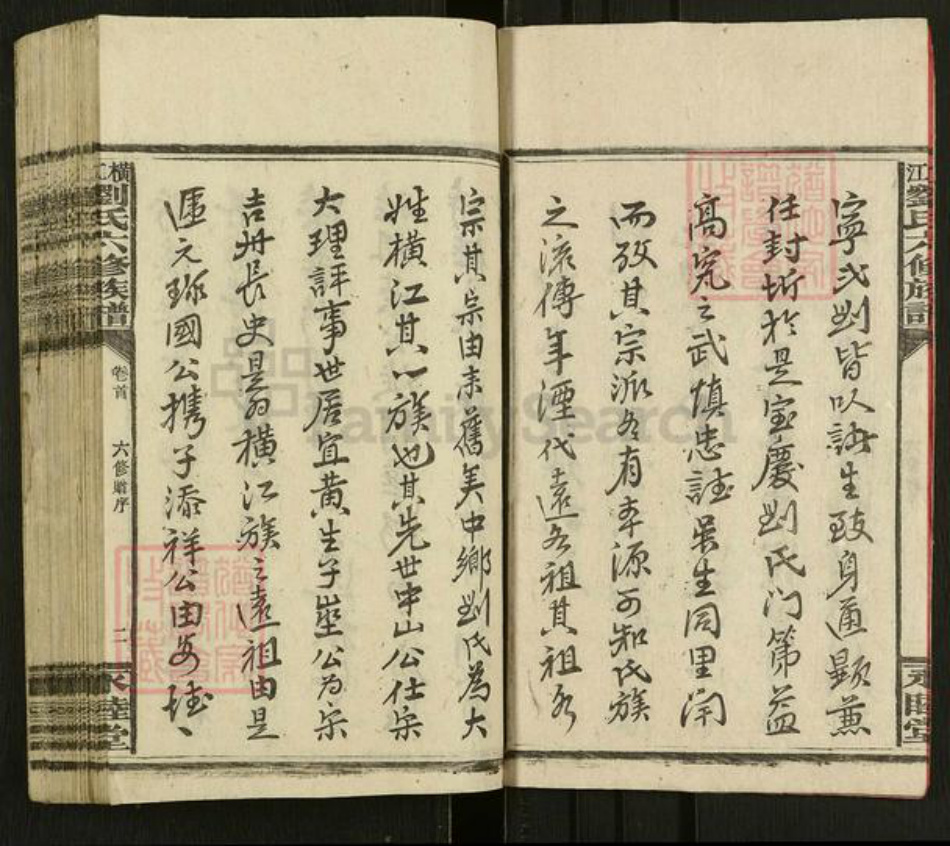 江劉氏六修族譜
永睦堂
寧之刘皆以諸生致身通顯兼
任封圻於是宝慶刘氏门第益
高究之武慎忠誠吳生同里閈
而攷其宗派各有本源可知氏族
之流傳年湮代遠各祖其祖各
宗其宗由来舊矣中鄉刘氏為大
姓橫江其一族也其先世中山公仕宋
大理評事世居宜黄生子崖公为宗
吉州長史是为橫江族之遠祖由是
遞元珎國公携子添祥公由安
橫江劉氏六修族譜
卷首
六修贈序
二
永睦堂
FamilySearch